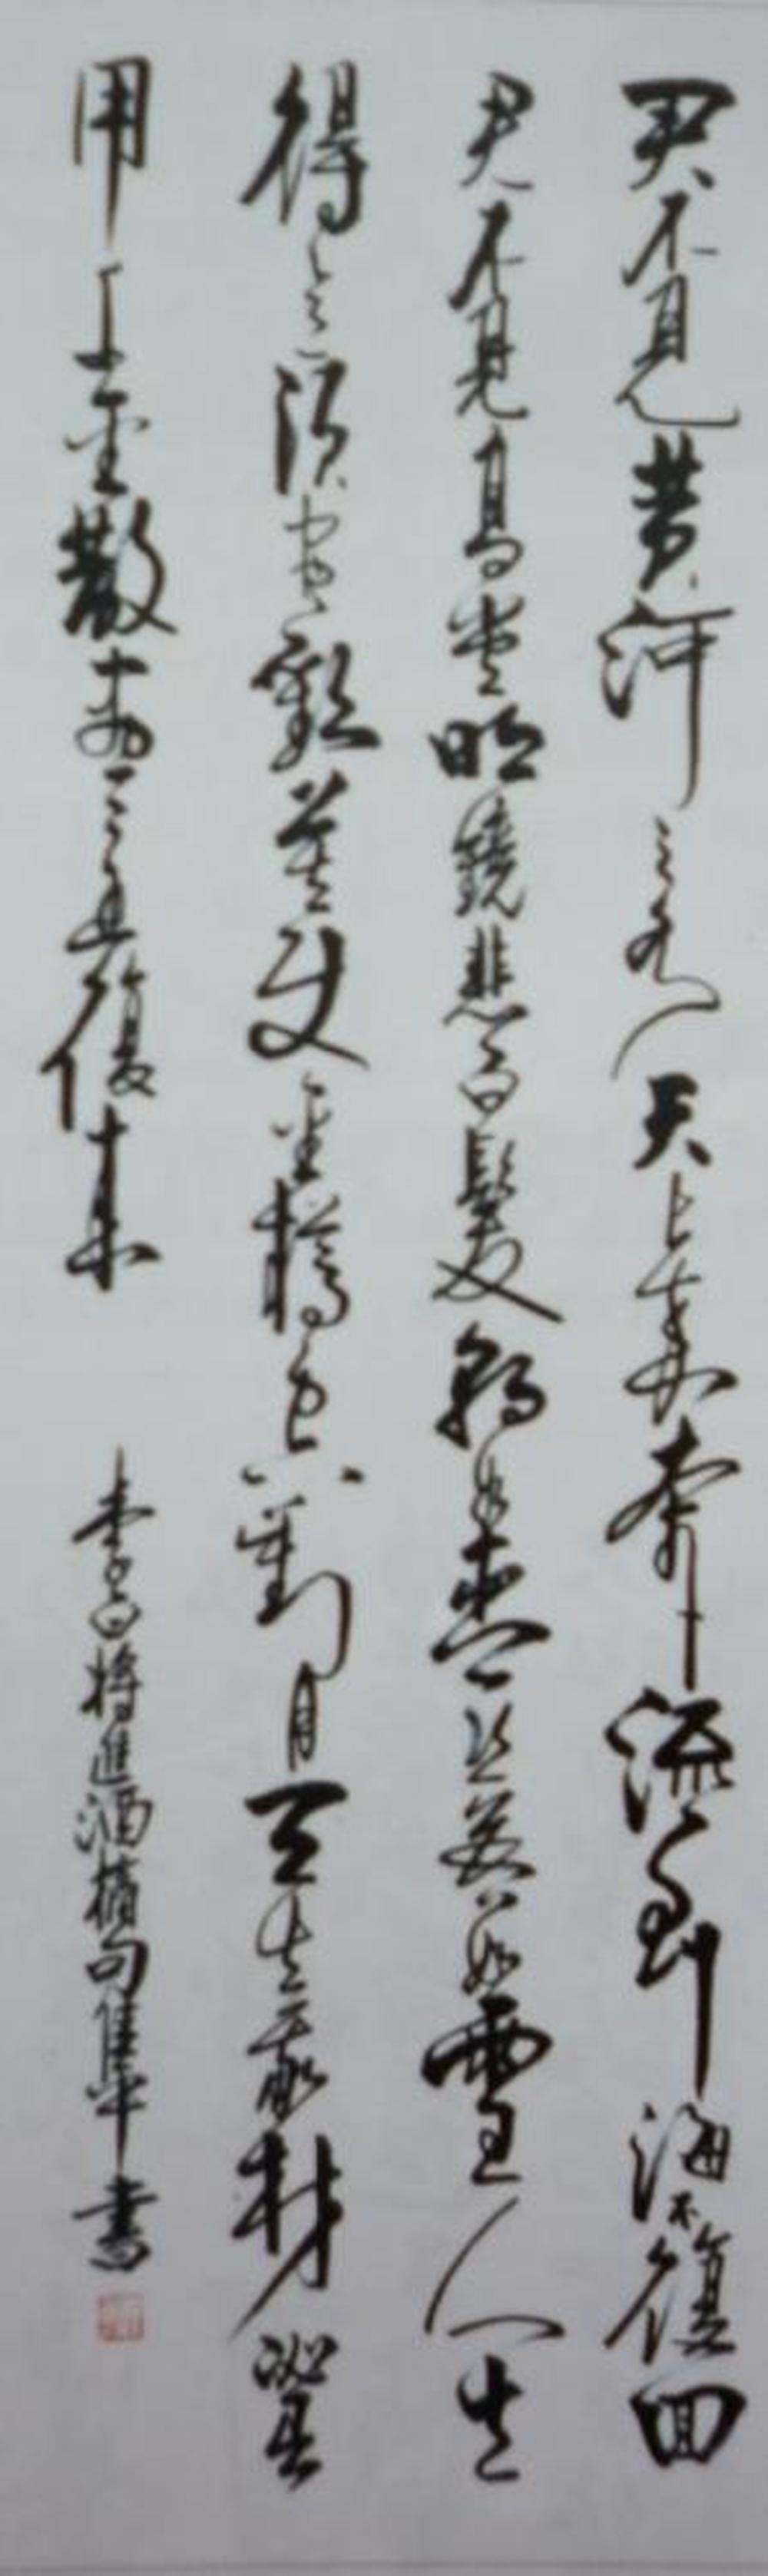 君不見黄河之水天上来奔流到海不復回
君不見高堂明鏡悲白髮朝如青絲暮如雪人生
得意須盡歡莫使金樽空對月天生我材必有
用千金散盡還復来 李白將進酒摘句集平書